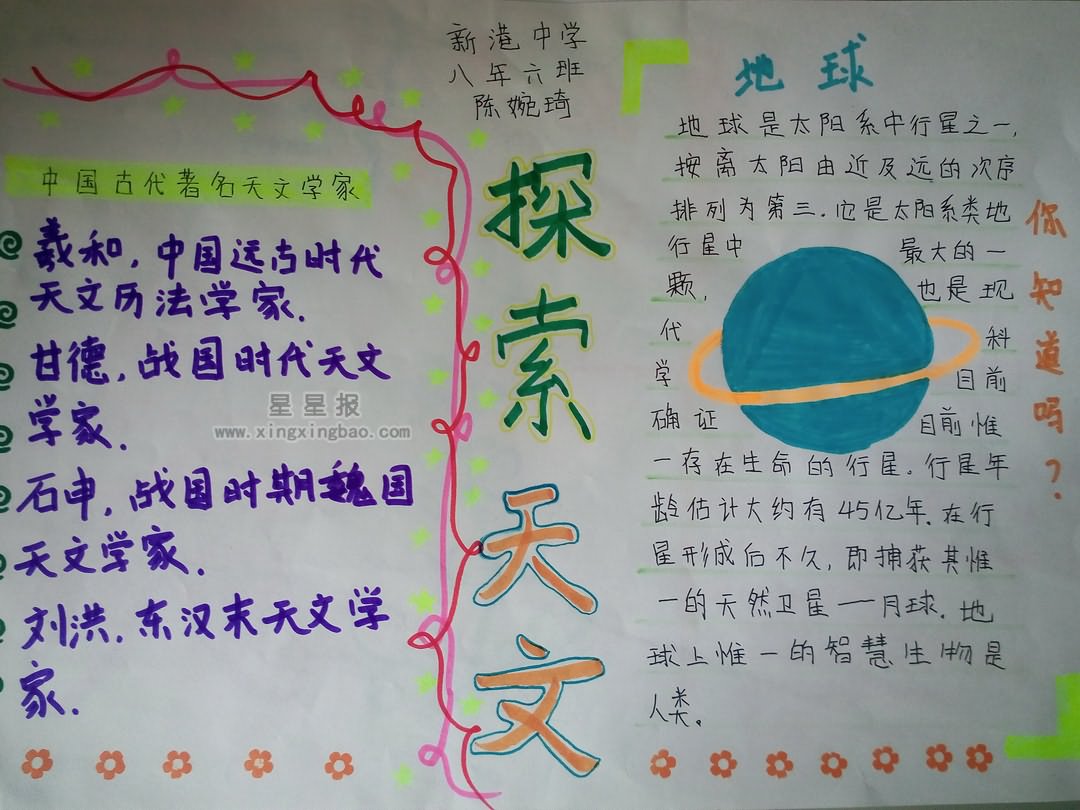 新港中学
八年六班
陈婉琦
中国古代著名天文学家
羲和，中国远古时代
天文历法学家.
甘德，战国时代天文
学家.
石申，战国时期魏国
天文学家.
刘洪.东汉末天文学
家.
星星报
www.xingxingbao.com
探索天文
地球
地球是太阳系中行星之一，
按离太阳由近及远的次序
排列为第三.它是太阳系类地
行星中最大的一
颗，也是现
代科
学目前
确证目前惟
一存在生命的行星.行星年
龄估计大约有45亿年.在行
星形成后不久，即捕获其惟
一的天然卫星——月球.地
球上惟一的智慧生物是
人类。
你知道吗？